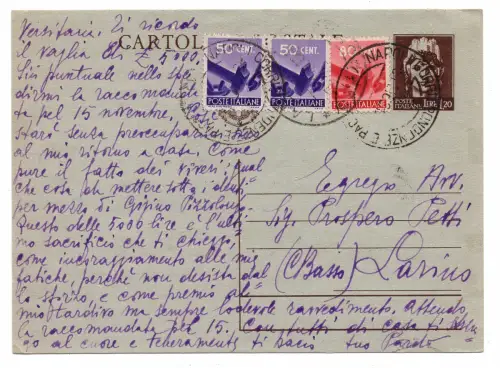 Versitaria. Ti ricordo
il vaglia di £ 5000.
Sii puntuale nello spe
dirmi la raccomanda
ta pel 15 novembre,
starò senza preoccupazioni
al mio ritorno a casa. Come
pure il fatto dei viveri, qual
che cosa già mettere sotto i denti
per mezzo di Pizzolon
Questo delle 5000 lire è l'ulti
mo sacrificio che ti chieggo,
come incoraggiamento alle mie
fatiche, perchè non desista dal
lo storno, e come premio al
mio tardivo ma sempre lodevole ravvedimento. Attendo
la raccomandata pel 15. Con tutti di casa ti strin
go al cuore e teneramente ti bacio tuo
CARTOLINA POSTALE
50 CENT.
POSTE ITALIANE
50 CENT.
POSTE ITALIANE
POSTE ITALIANE
POSTE ITALIANE
LIRE 1,20
NAPOLI
CORRISPONDENZE E PACCHI
Egregio Avv.
Sig. Prospero Petti
(Basso) Larino